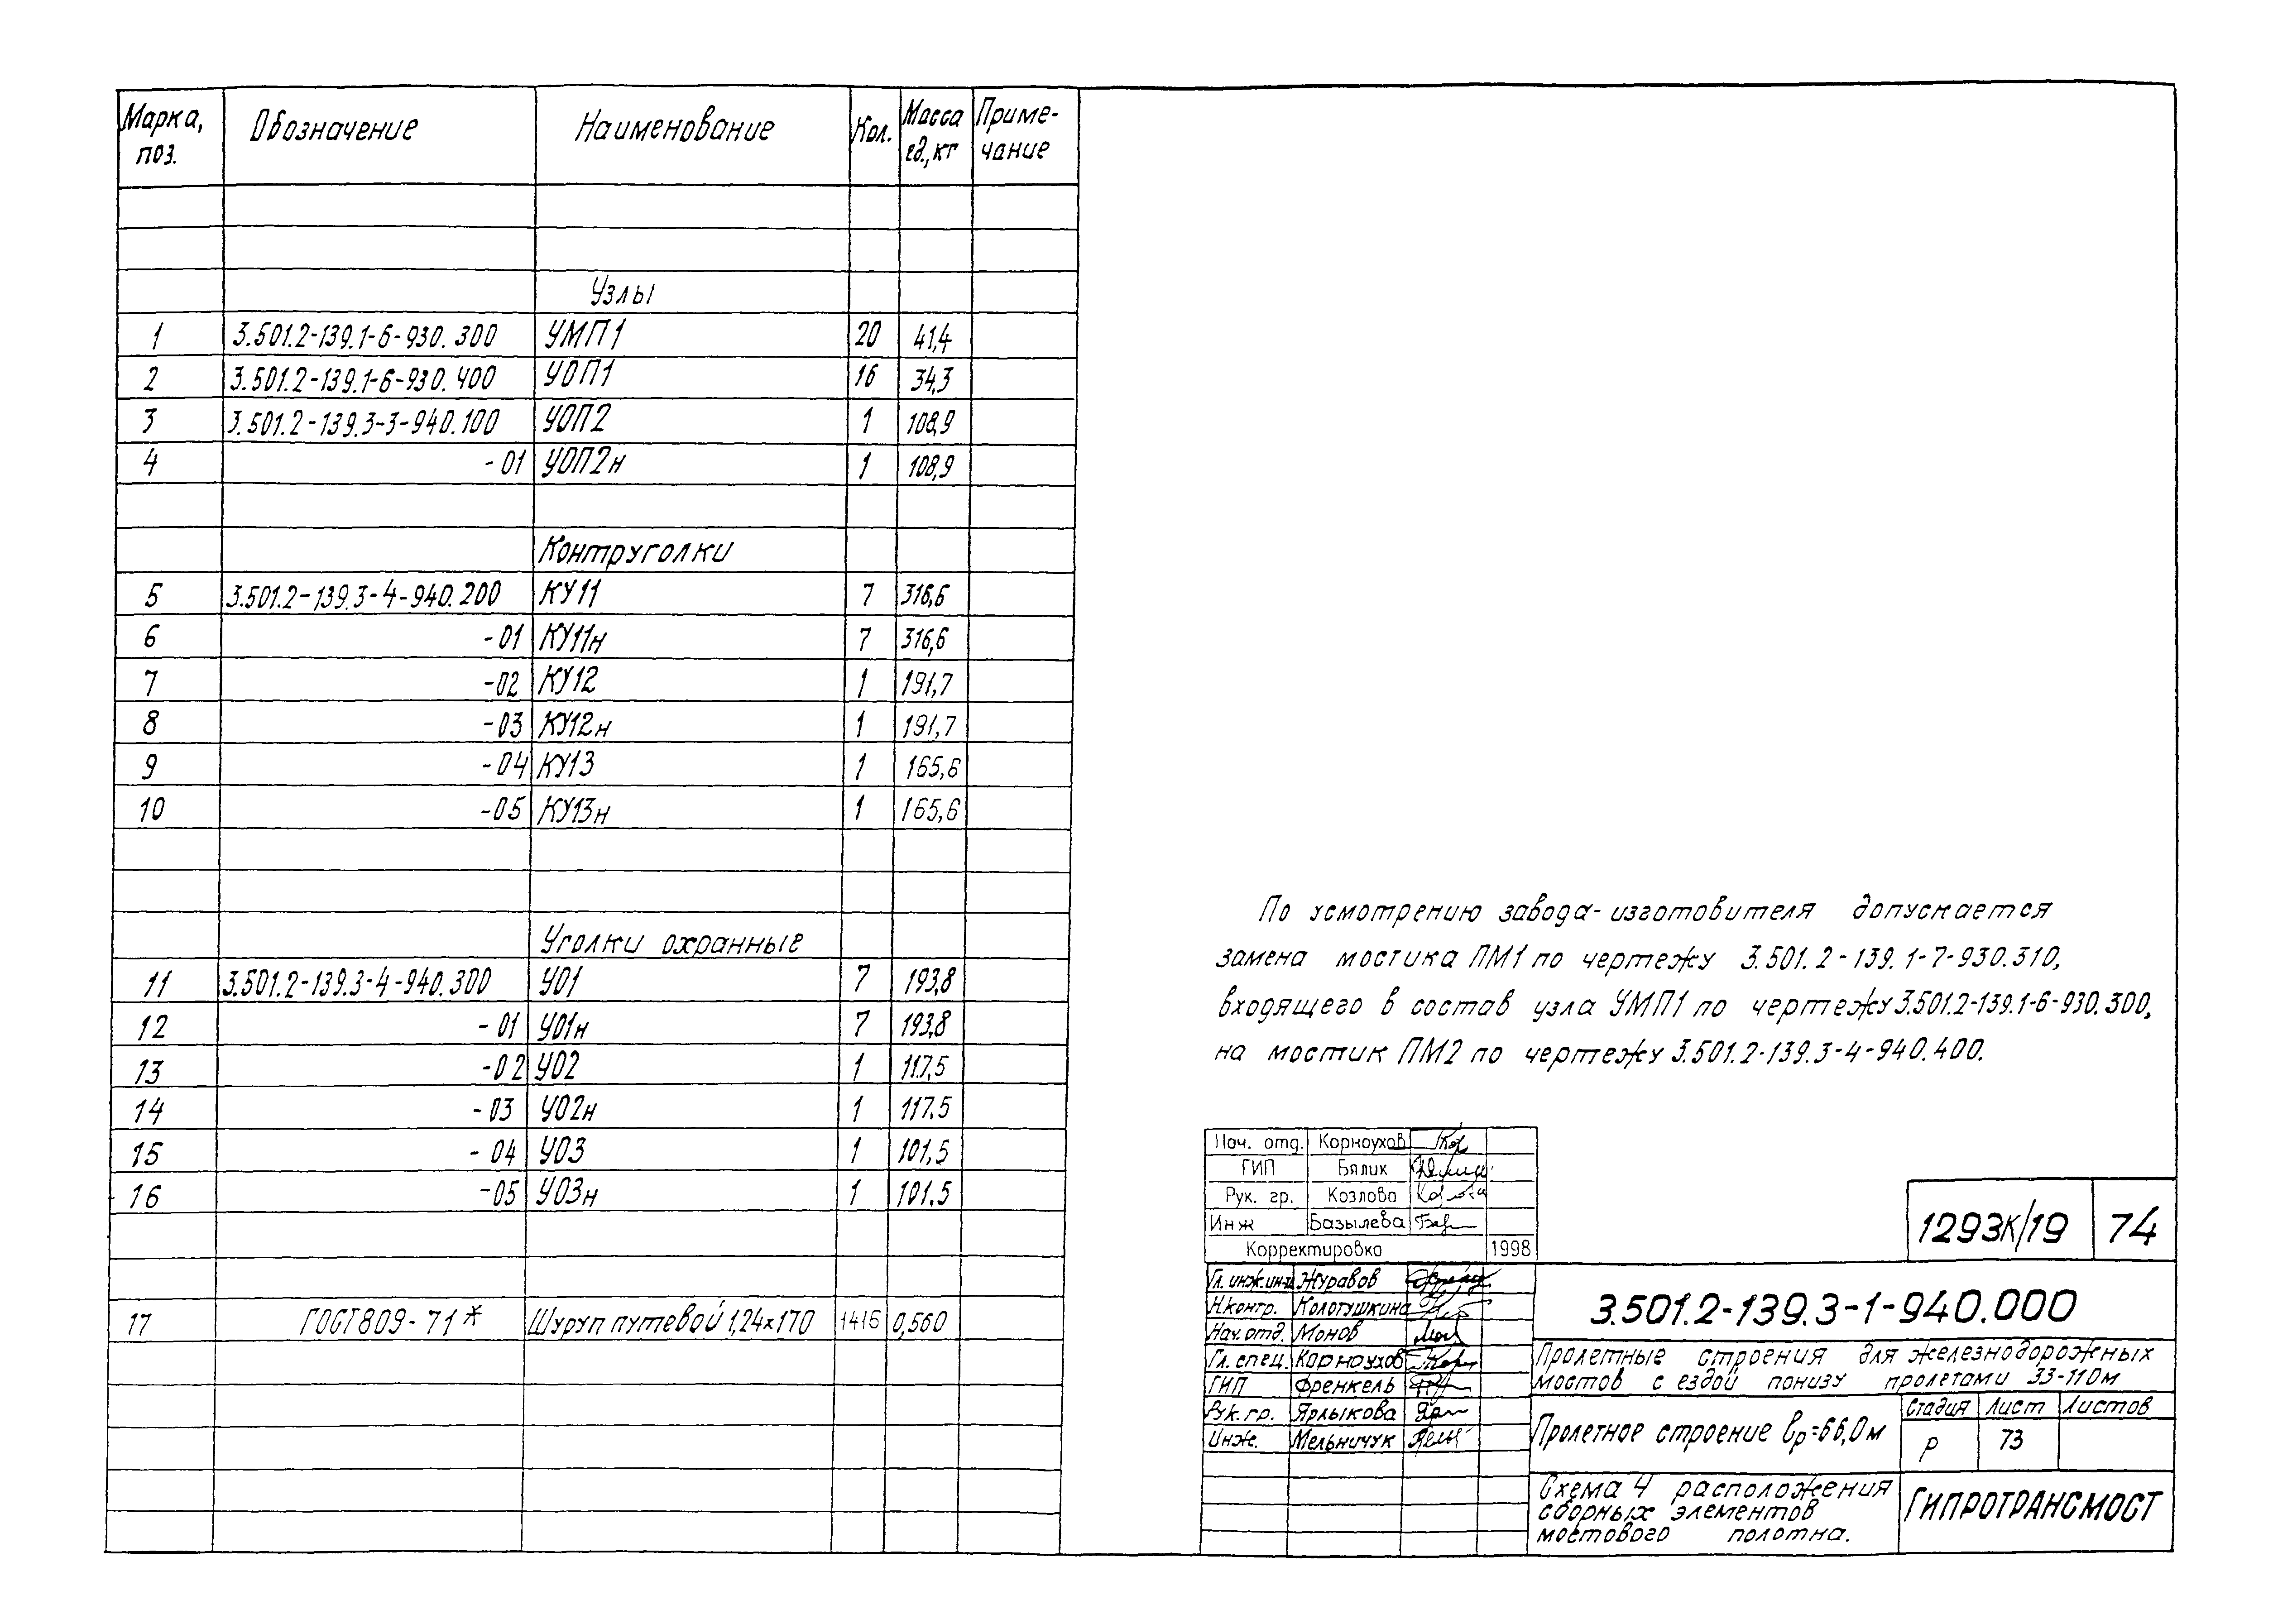 Марка, поз. Обозначение Наименование Кол. Масса ед.,кг Приме-чание
Узлы
1 3.501.2-139.1-6-930.300 УМП1 20 41,4
2 3.501.2-139.1-6-930.400 УОП1 16 34,3
3 3.501.2-139.3-3-940.100 УОП2 1 108,9
4 -01 УОП2н 1 108,9
Контруголки
5 3.501.2-139.3-4-940.200 КУ11 7 316,6
6 -01 КУ11н 7 316,6
7 -02 КУ12 1 191,7
8 -03 КУ12н 1 191,7
9 -04 КУ13 1 165,6
10 -05 КУ13н 1 165,6
Уголки охранные
11 3.501.2-139.3-4-940.300 УО1 7 193,8
12 -01 УО1н 7 193,8
13 -02 УО2 1 117,5
14 -03 УО2н 1 117.5
15 -04 УО3 1 101,5
16 -05 УО3н 1 101.5
17 ГОСТ 809-71* Шуруп путевой 1,24×170 1416 0,560
По усмотрению завода-изготовителя допускается
замена мостика ПМ1 по чертежу 3.501.2-139.1-7-930.310,
входящего в состав узла УМП1 по чертежу 3.501.2-139.1-6-930.300,
на мостик ПМ2 по чертежу 3.501.2-139.3-4-940.400.
Нач. отд. Корноухов
ГИП Бялик
Рук. гр. Козлова
Инж Базылева
Корректировка 1998
1293К/19 74
Гл. инж. Журавов
Н.контр. Колотушкина
Нач. отд. Монов
Гл. спец. Корноухов
ГИП Френкель
Рук. гр. Ярлыкова
Инж. Мельничук
3.501.2-139.3-1-940.000
Пролетные строения для железнодорожных
мостов с ездой понизу пролетами 33-110м
Пролетное строение ℓр=66,0м
Стадия Лист Листов
Р 73
Схема 4 расположения
сборных элементов
мостового полотна.
ГИПРОТРАНСМОСТ